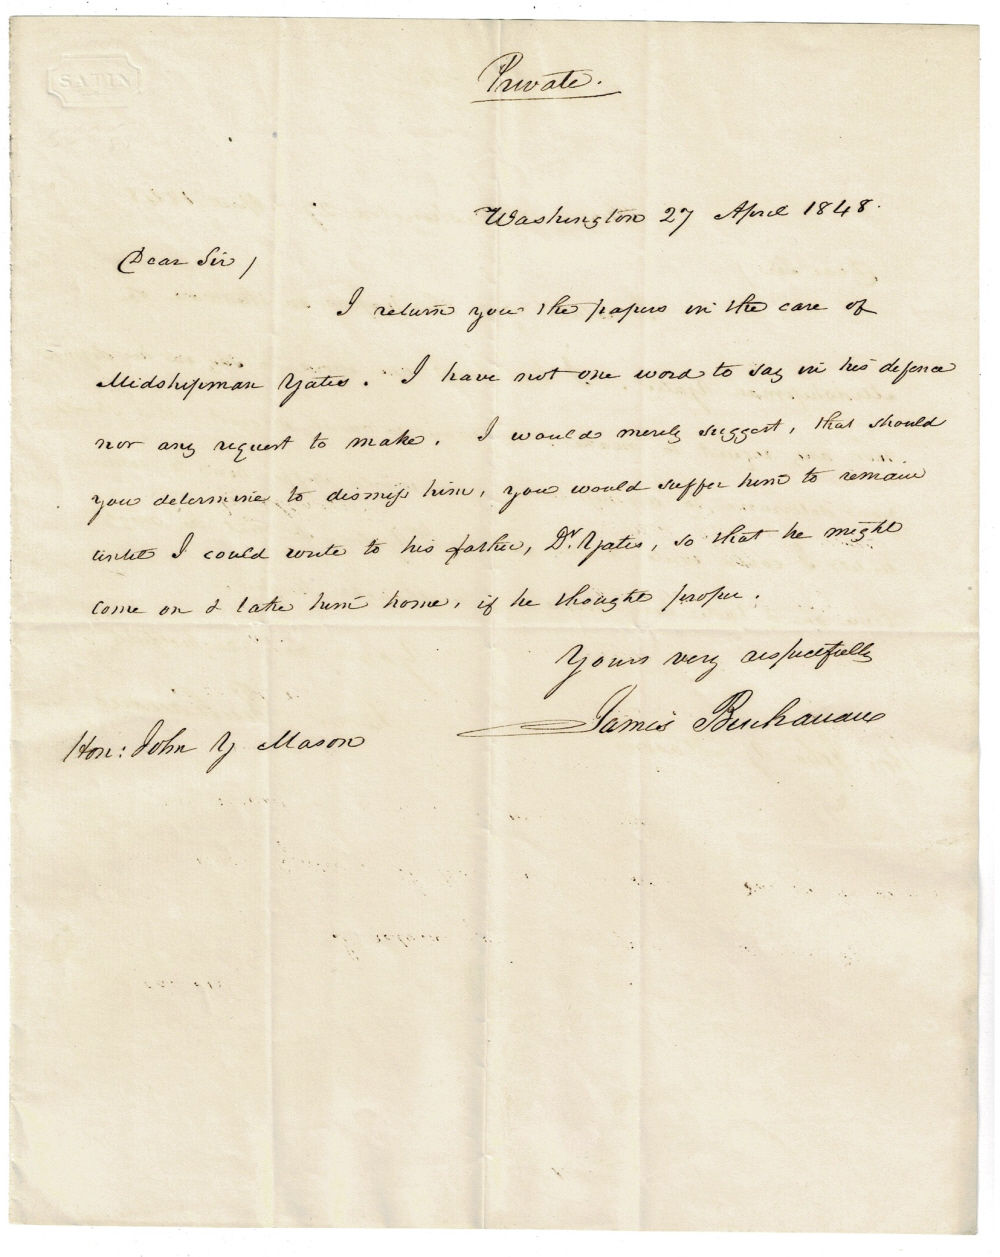 SATIN
Private.
Washington 27 April 1848.
Dear Sir,
I return you the papers in the case of
Midshipman Yates. I have not one word to say in his defence
nor any request to make. I would merely suggest, that should
you determine to dismiss him, you would suffer him to remain
until I could write to his father, Dr. Yates, so that he might
come on & take him home, if he thought proper.
Yours very respectfully
James Buchanan
Hon: John Y Mason